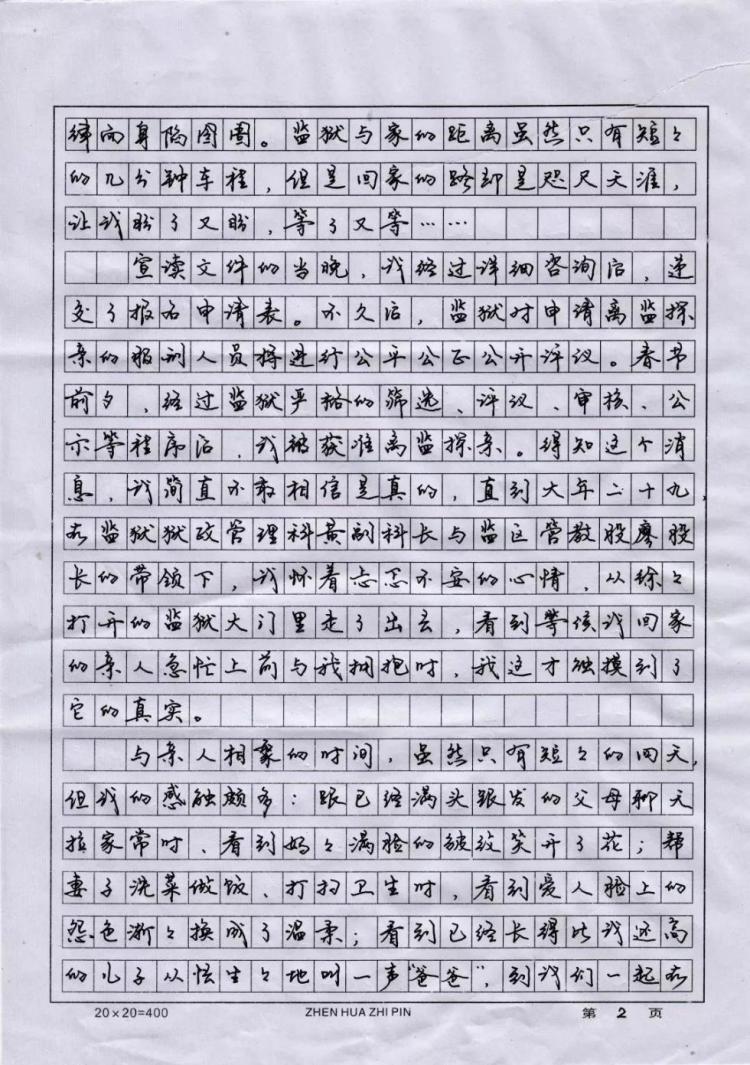 绅向身陷囹圄。监狱与家的距离虽然只有短々
的几分钟车程，但是回家的路却是咫尺天涯，
让我盼了又盼，等了又等……
宣读文件的当晚，我经过详细咨询后，递
交了报名申请表。不久后，监狱对申请离监探
亲的服刑人员将进行公平公正公开评议。春节
前夕，经过监狱严格的筛选、评议、审核、公
示等程序后，我被获准离监探亲。得知这个消
息，我简直不敢相信是真的，直到大年二十九，
在监狱狱政管理科黄副科长与监区管教股廖股
长的带领下，我怀着忐忑不安的心情，从徐々
打开的监狱大门里走了出去，看到等候我回家
的亲人急忙上前与我拥抱时，我这才触摸到了
它的真实。
与亲人相聚的时间，虽然只有短々的四天，
但我的感触颇多：跟已经满头银发的父母聊天
拉家常时、看到妈々满脸的皱纹笑开了花；帮
妻子洗菜做饭、打扫卫生时，看到爱人脸上的
怨色渐々换成了温柔；看到已经长得比我还高
的儿子从怯生々地叫一声“爸爸”，到我们一起在
20×20=400 ZHEN HUA ZHI PIN 第 2 页